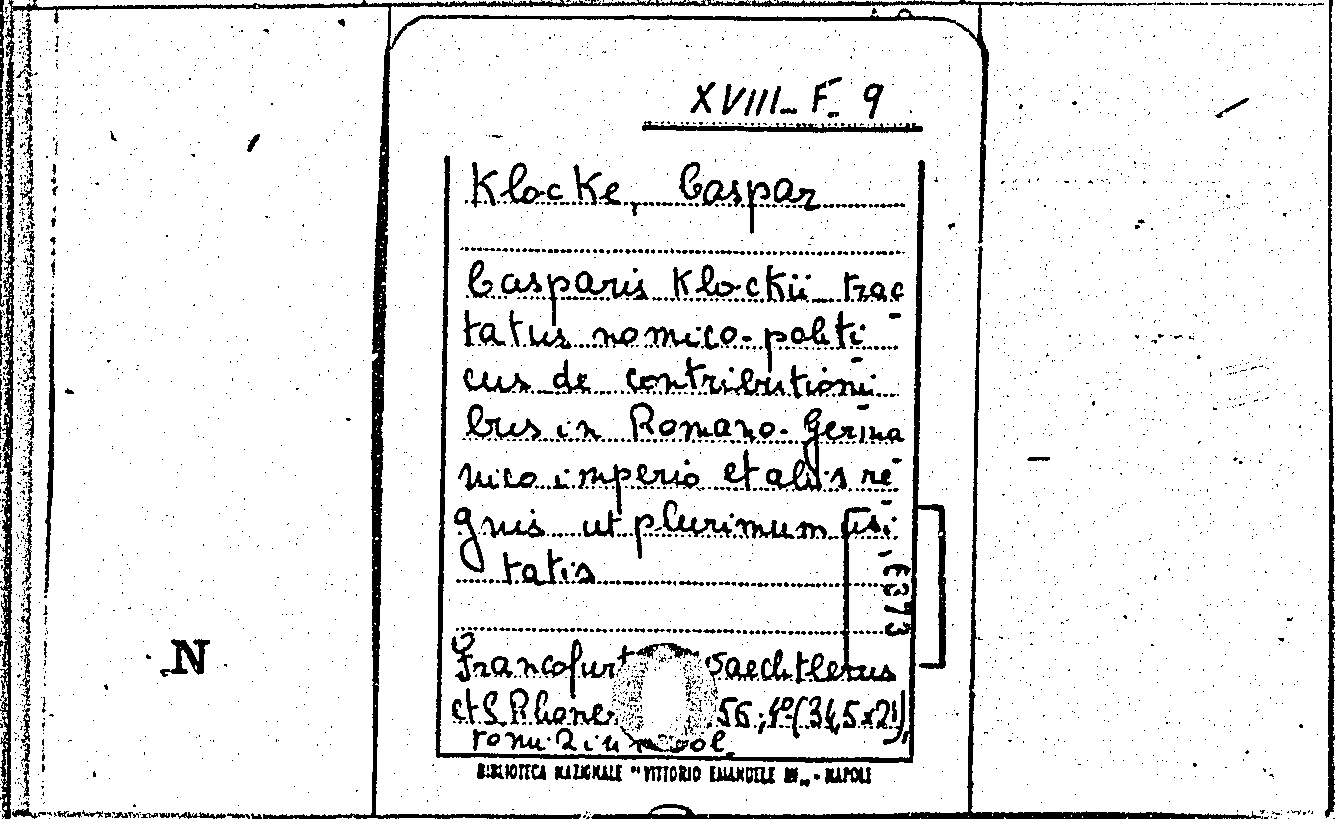 XVIII_ F. 9
Klocke, Caspar
Casparis Klockii trac
tatus nomico-politi
cus de contributioni
bus in Romano-Germa
nico imperio et aliis re
gnis ut plurimum usi
tatis
Saechtlerus
56; 4º (34,5x21),
tomi 2 in
BIBLIOTECA NAZIONALE "VITTORIO EMANUELE III„ - NAPOLI
N